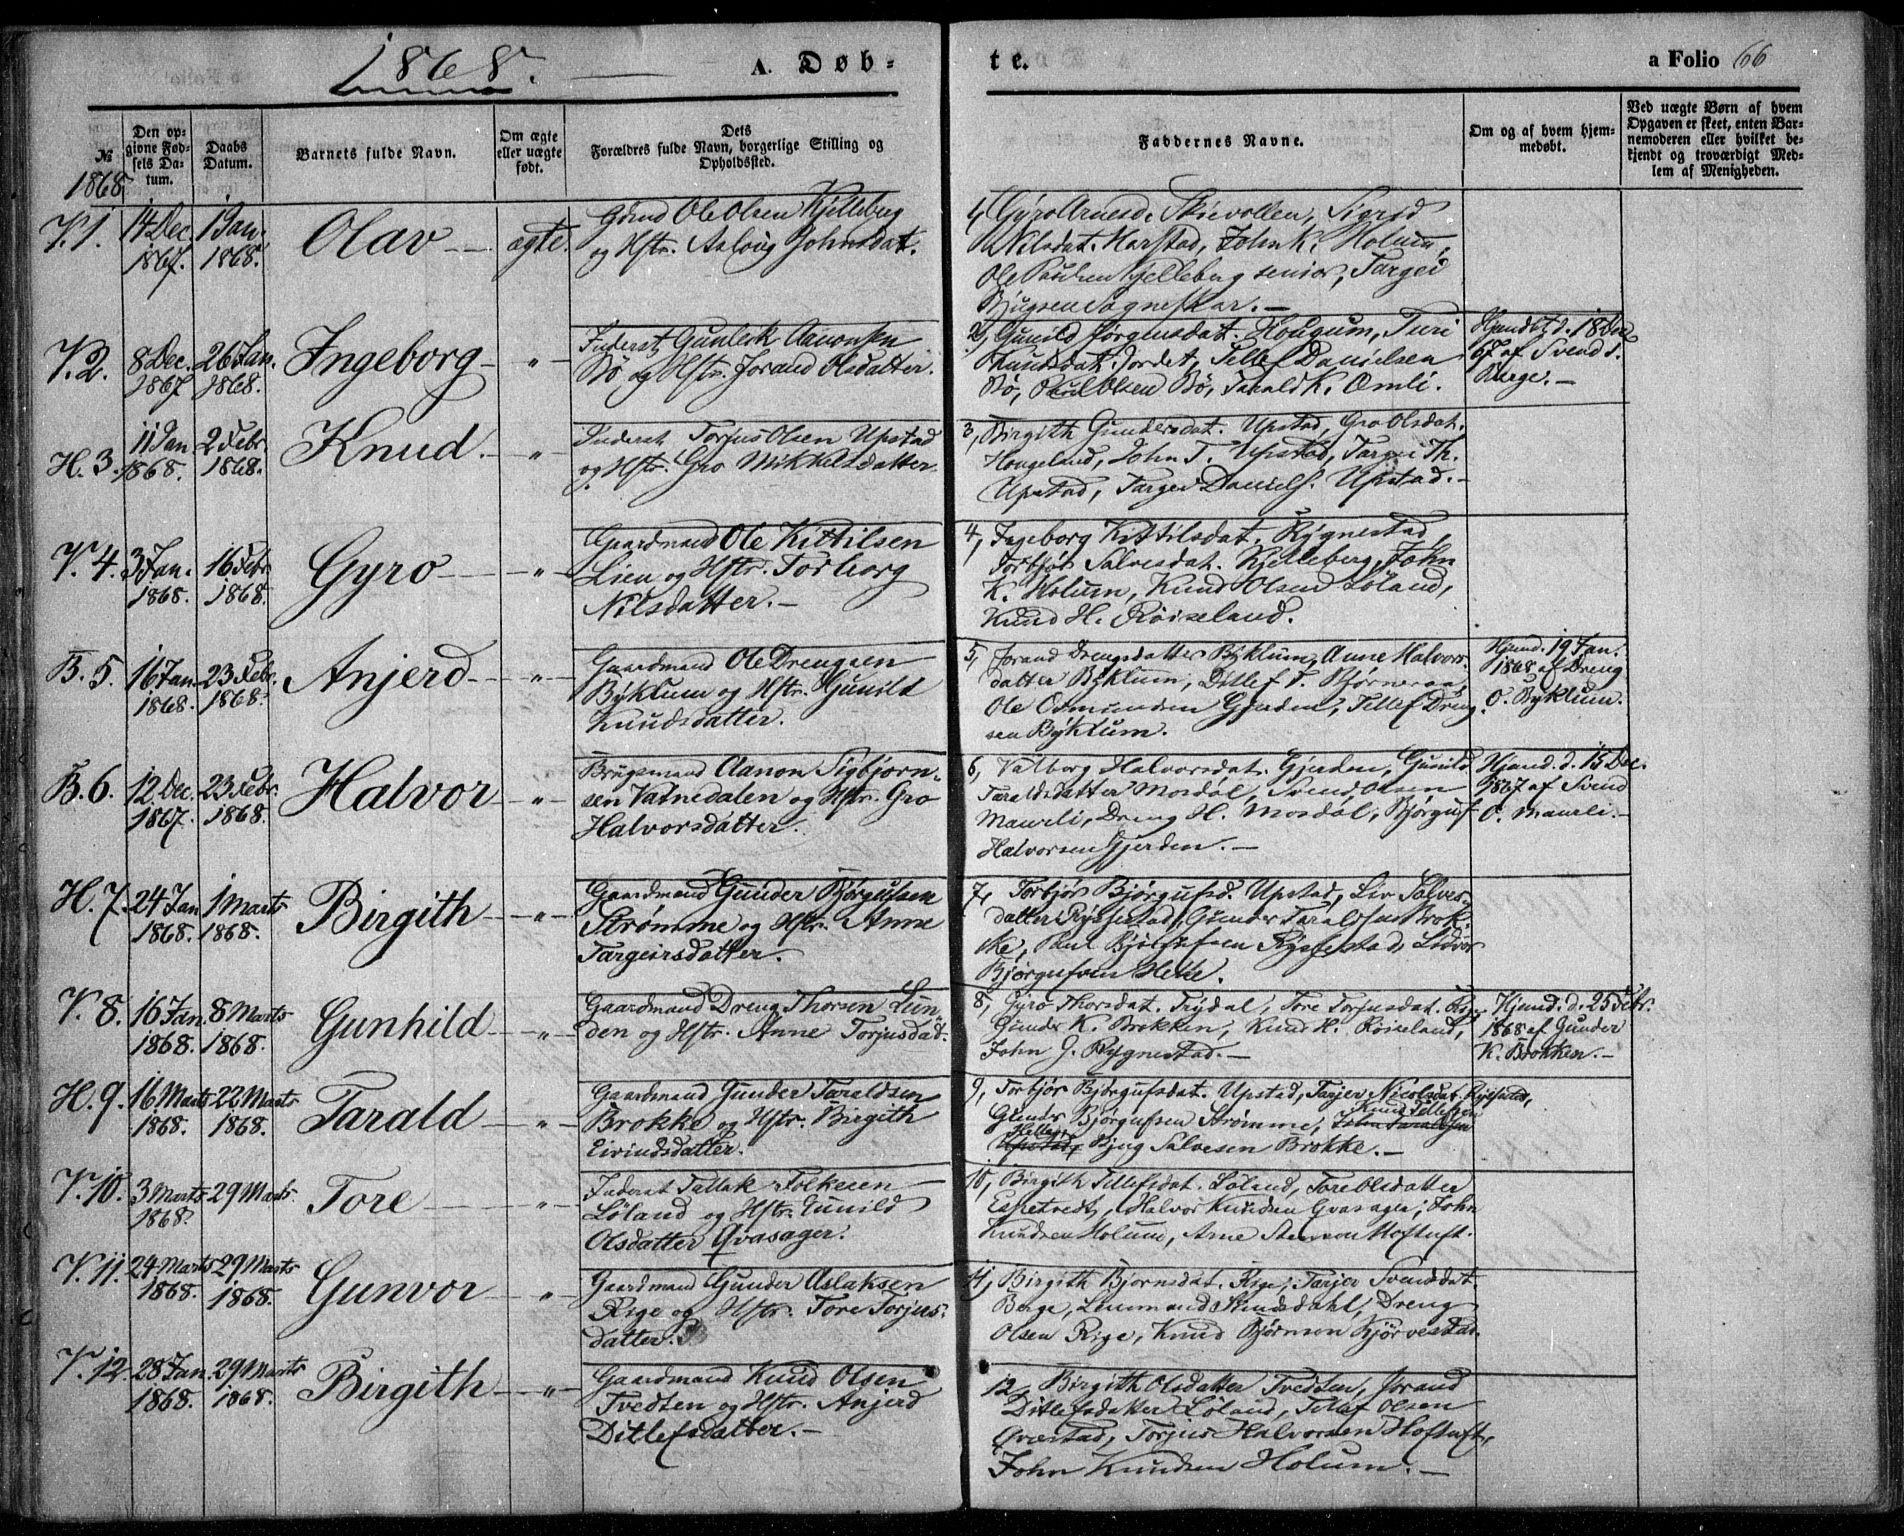 1868.
A. Døb-
te.
a Folio 66
№
1868
Den op-
gione Fød-
sels Da-
tum.
Daabs
Datum.
Barnets fulde Navn.
Om ægte
eller uægte
født.
Dets
Forældres fulde Navn, borgerlige Stilling og
Opholdssted.
Faddernes Navne.
Om og af hvem hjem-
medøbt.
Ved uægte Børn af hvem
Opgaven er skeet, enten Bar-
nemoderen eller hvilket be-
kjendt og troværdigt Med-
lem af Menigheden.
V. 1.
14 Dec.
1867.
1 Jan.
1868.
Olav
ægte.
Gmd Ole Olsen Kjelleberg
og Hstr. Asloug Johnsdat.
1, Gyro Arnesd. Skievollen, Sigrid
Nilsdat. Harstad, John K. Holum,
Ole Paulsen Kjelleberg senior, Targei
Bjugsen Sogneskar.
V. 2.
8 Dec.
1867
26 Jan.
1868.
Ingeborg
"
Inderst Gunleik Aanonsen
Bø og Hstr. Jorand Olsdatter.
2, Gunild Jørgensdat. Hougum, Turi
Knudsdat. Jordet, Tellef Danielsen
Bø, Paul Olsen Bø, Tarald K. Omli.
Hjemdbt d. 18 Dec
67 af Svend T.
Rige.
H. 3.
11 Jan
1868.
2 Febr.
1868.
Knud.
"
Inderst Torjus Olsen Upstad
og Hstr. Gro Mikkelsdatter.
3, Birgith Gundersdat. Upstad, Gro Olsdat.
Hougeland, John T. Upstad, Targei Th.
Upstad, Targei Daniels. Upstad.
V. 4.
3 Jan.
1868.
16 Febr.
1868.
Gyro
"
Gaardmand Ole Kittilsen
Lien og Hstr. Torborg
Nilsdatter.
4, Ingeborg Kittilsdat. Rygnestad,
Torbjør Salvesdat. Kjelleberg, John
K. Holum, Knud Olsen Løland,
Knud H. Røiseland.
B. 5.
16 Jan.
1868.
23 Febr.
1868.
Anjerd
"
Gaardmand Ole Drengsen
Byklum og Hstr. Gunild
Knudsdatter.
5, Jorand Drengsdatter Byklum, Anne Halvors-
datter Byklum, Ditlef T. Bjørneraa,
Ole Osmundsen Gjerden, Tellef Dreng-
sen Byklum.
Hjemd. 19 Jan.
1868 af Dreng
O. Byklum.
B. 6.
12 Dec.
1867.
23 Febr.
1868.
Halvor
"
Brugsmand Aanon Sigbjørn-
sen Vatnedalen og Hstr. Gro
Halvorsdatter.
6, Valborg Halvorsdat. Gjerden, Gunild
Taraldsdatter Mosdøl, Svend Olsen
Maurli, Dreng H. Mosdøl, Bjørguf
Halvorsen Gjerden.
Hjemd. d. 15 Dec.
1867 af Svend
O. Maurli.
H. 7.
24 Jan
1868.
1 Marts
1868.
Birgith
"
Gaardmand Gunder Bjørgufsen
Strømme og Hstr. Anne
Targeirsdatter.
7, Torbjør Bjørgufsd. Upstad, Liv Salves-
datter Rysstad, Gunder Taraldsen Brok-
ke, Paul Bjørgufsen Rysstad, Lodvor
Bjørgufsen Helle.
V. 8.
16 Jan.
1868.
8 Marts
1868.
Gunhild
"
Gaardmand Dreng Thorsen Lun-
den og Hstr. Anne Torjusdat.
8, Gyro Thorsdat. Trydal, Tore Torjusdat. Rige
Gunder K. Brokken, Knud H. Røiseland,
John G. Rygnestad.
Hjemd. d. 25 Febr.
1868 af Gunder
K. Brokken.
H. 9.
16 Marts
1868.
22 Marts
1868.
Tarald
"
Gaardmand Gunder Taraldsen
Brokke og Hstr. Birgith
Eivindsdatter.
9, Torbjør Bjørgufsdat. Upstad, Tarjer Nicolsdat. Rysstad,
Gunder Bjørgufsen Strømme, Knud Tellefsen
Helle, Bjug Salvesen Brokke.
V. 10.
3 Marts
1868.
29 Marts
Tore
"
Inderst Tallak Folkesen
Løland og Hstr. Gunild
Olsdatter Qvasager.
10, Birgith Tellefsdat. Løland, Tore Olsdatter
Espetvedt, Halvor Knudsen Qvasager, John
Knudsen Holum, Arne Stenson Hoftuft.
V. 11.
24 Marts
1868.
29 Marts
1868.
Gunvor
"
Gaardmand Gunder Aslaksen
Rige og Hstr. Tore Torjus-
datter.
11, Birgith Bjørnsdat. Rige, Tarjer Svensdat.
Berge, Lensmand Stensdahl, Dreng
Olsen Rige, Knud Bjørnson Kjørvestad.
V. 12.
28 Jan.
1868.
29 Marts
1868.
Birgith
"
Gaardmand Knud Olsen
Tvedten og Hstr. Anjerd
Ditlefsdatter.
12, Birgith Olsdatter Tvedten, Jorand
Ditlefsdatter Løland, Tellef Olsen
Qvestad, Torjus Halvorsen Hoftuft,
John Knudsen Holum.